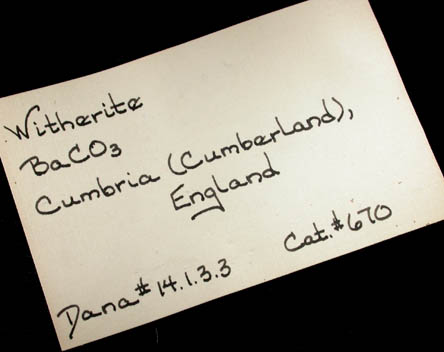 Witherite
BaCO3
Cumbria (Cumberland),
England
Dana# 14.1.3.3 Cat.#670